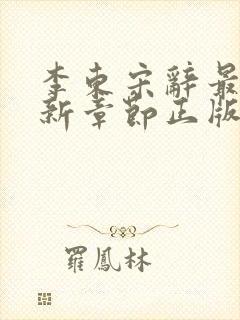 李东宋辭最
新章節正版
羅鳳林